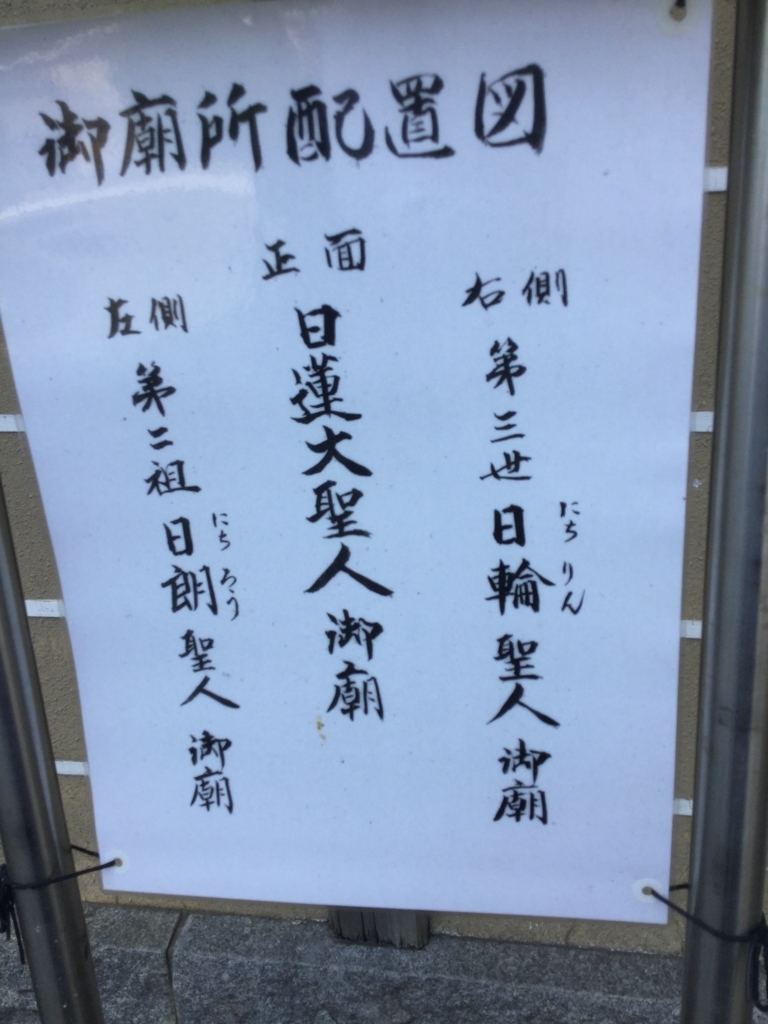 御廟所配置図
右側
第三世日輪聖人御廟
にちりん
正面
日蓮大聖人御廟
左側
第二祖日朗聖人御廟
にちろう